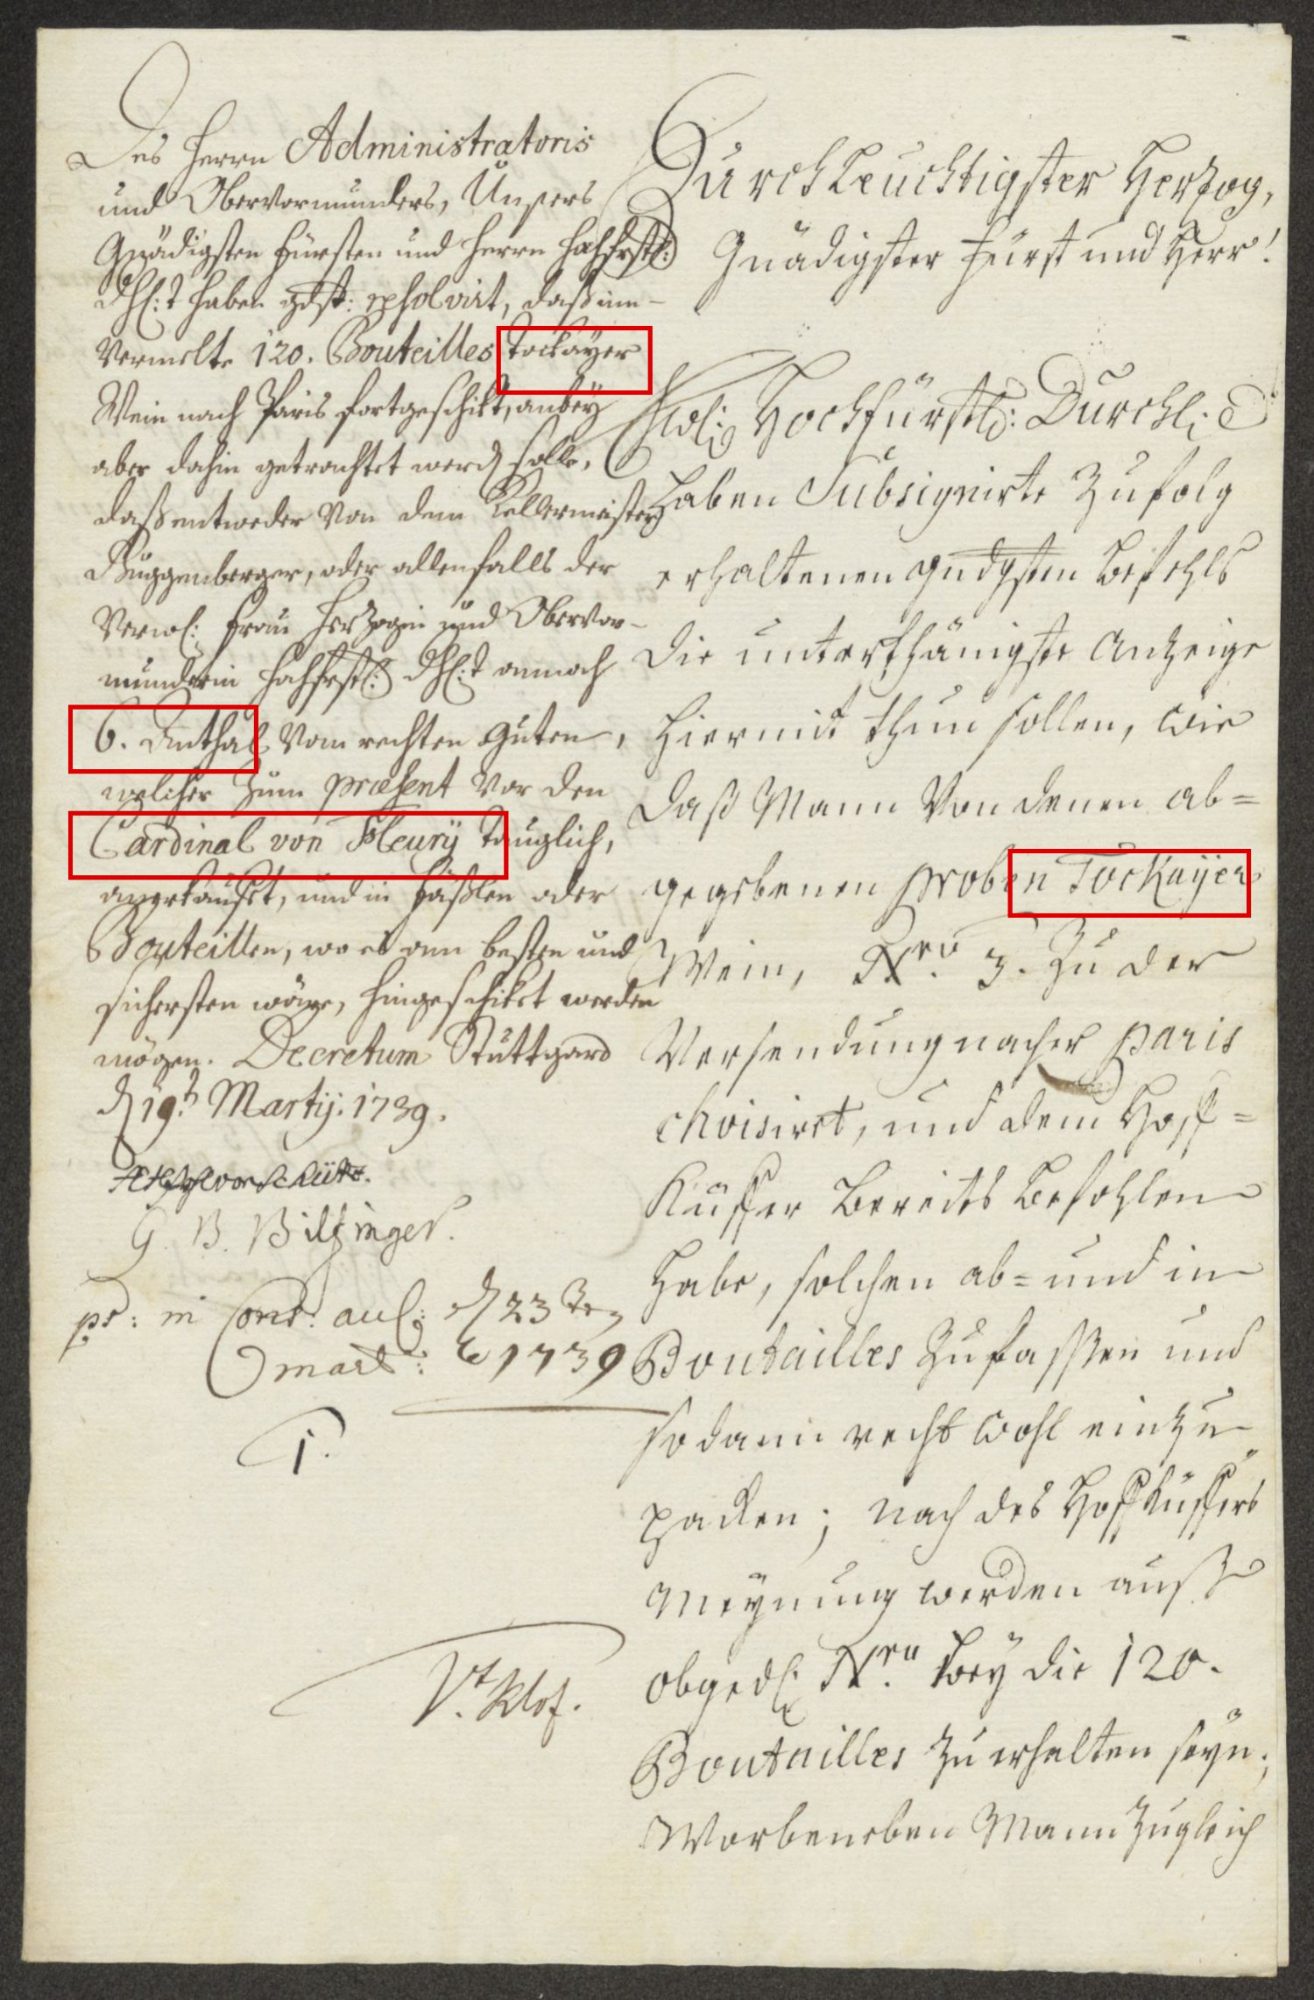 Des Herrn Administratoris
und Obervormunders, Unsers
Gnädigsten Fürsten und Herrn Hochfrstl:
Dhl:t haben gdst: resolvirt, daß inn-
Vermelte 120. Bouteilles Tockayer
Wein nach Paris fortgeschikt, anbey
aber dahin getrachtet werd solle,
daß entweder Von dem Kellermeister
Guggenberger, oder allenfalls der
Verw: Frau Herzogin und Obervor-
munderin Hochfrstl: Dhl:t annoch
6. Anthal Vom rechten Guten,
welcher Zum præsent Vor den
Cardinal von Fleurÿ Tauglich,
angekaufft, und in Fäßlen oder
Bouteillen, wo es am besten und
sichersten wäre, hingeschikt werden
mögen. Decretum Stuttgard
d 19.t Martij. 1739.
G. B. Bilfinger.
pr: in Cons: aul: d 23
mart: 1739
1.
Vt.
Durchleuchtigster Herzog,
Gnädigster Fürst und Herr!
Hochfürstl: Durchl:
haben Subsignirte Zufolg
erhaltenen gndgsten Befehls
die unterthänigste Anzeige
hiermit thun sollen, wie
daß Mann Von denen ab=
gegebenen proben Tockayer
Wein, Nro. 3. Zu der
Versendung nacher Paris
choisirt, und dem Hoff=
Küffer Bereits Befohlen
habe, solchen ab= und in
Boutailles Zufassen und
sodann recht wohl einzu
packen; nach des Hoffküffers
Meynung werden auß
obged: Nro. 3 Bey die 120.
Boutailles Zu erhalten seyn;
Worbeneben Mann Zugleich